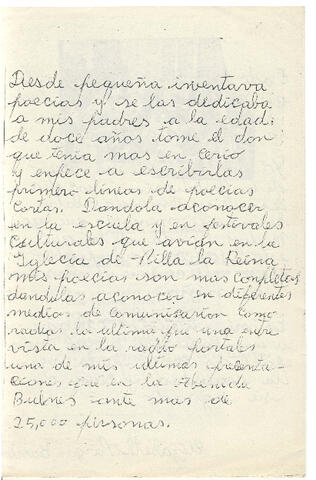 Desde pequeña inventava
poecias y se las dedicaba
a mis padres a la edad
de doce años tome el don
que tenia mas en cerio
y enpece a escribirlas
primero lineas de poecias
cortas. Dandola aconocer
en la escuela y en festevales
culturales que avian en la
Iglecia de Villa la Reina
mis poecias son mas conpletas
dandolas aconocer en diferentes
medios de comunicasion como
radios la ultima fue una entre
vista en la radio portales
una de mis ultimas presenta-
ciones fue en la Abenida
Bulnes ante mas de
25,000 personas.